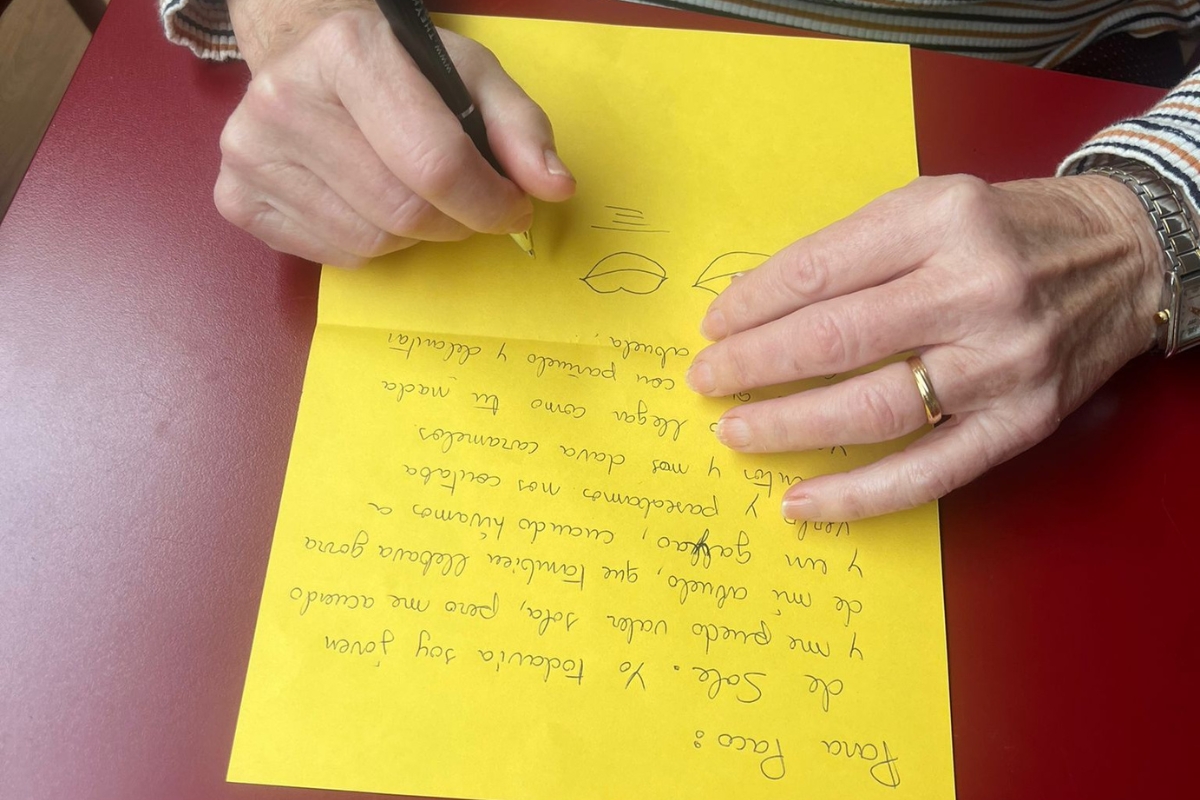 Para Paco:
de Sole. Yo todavía soy joven
y me puedo valer sola, pero me acuerdo
de mi abuelo, que tambien llebava gorra
y un cuando hívamos a
verlo y paseabamos nos contaba
y nos dava caramelos.
llegar como tú nada
con pañuelo y delantar
abuela.